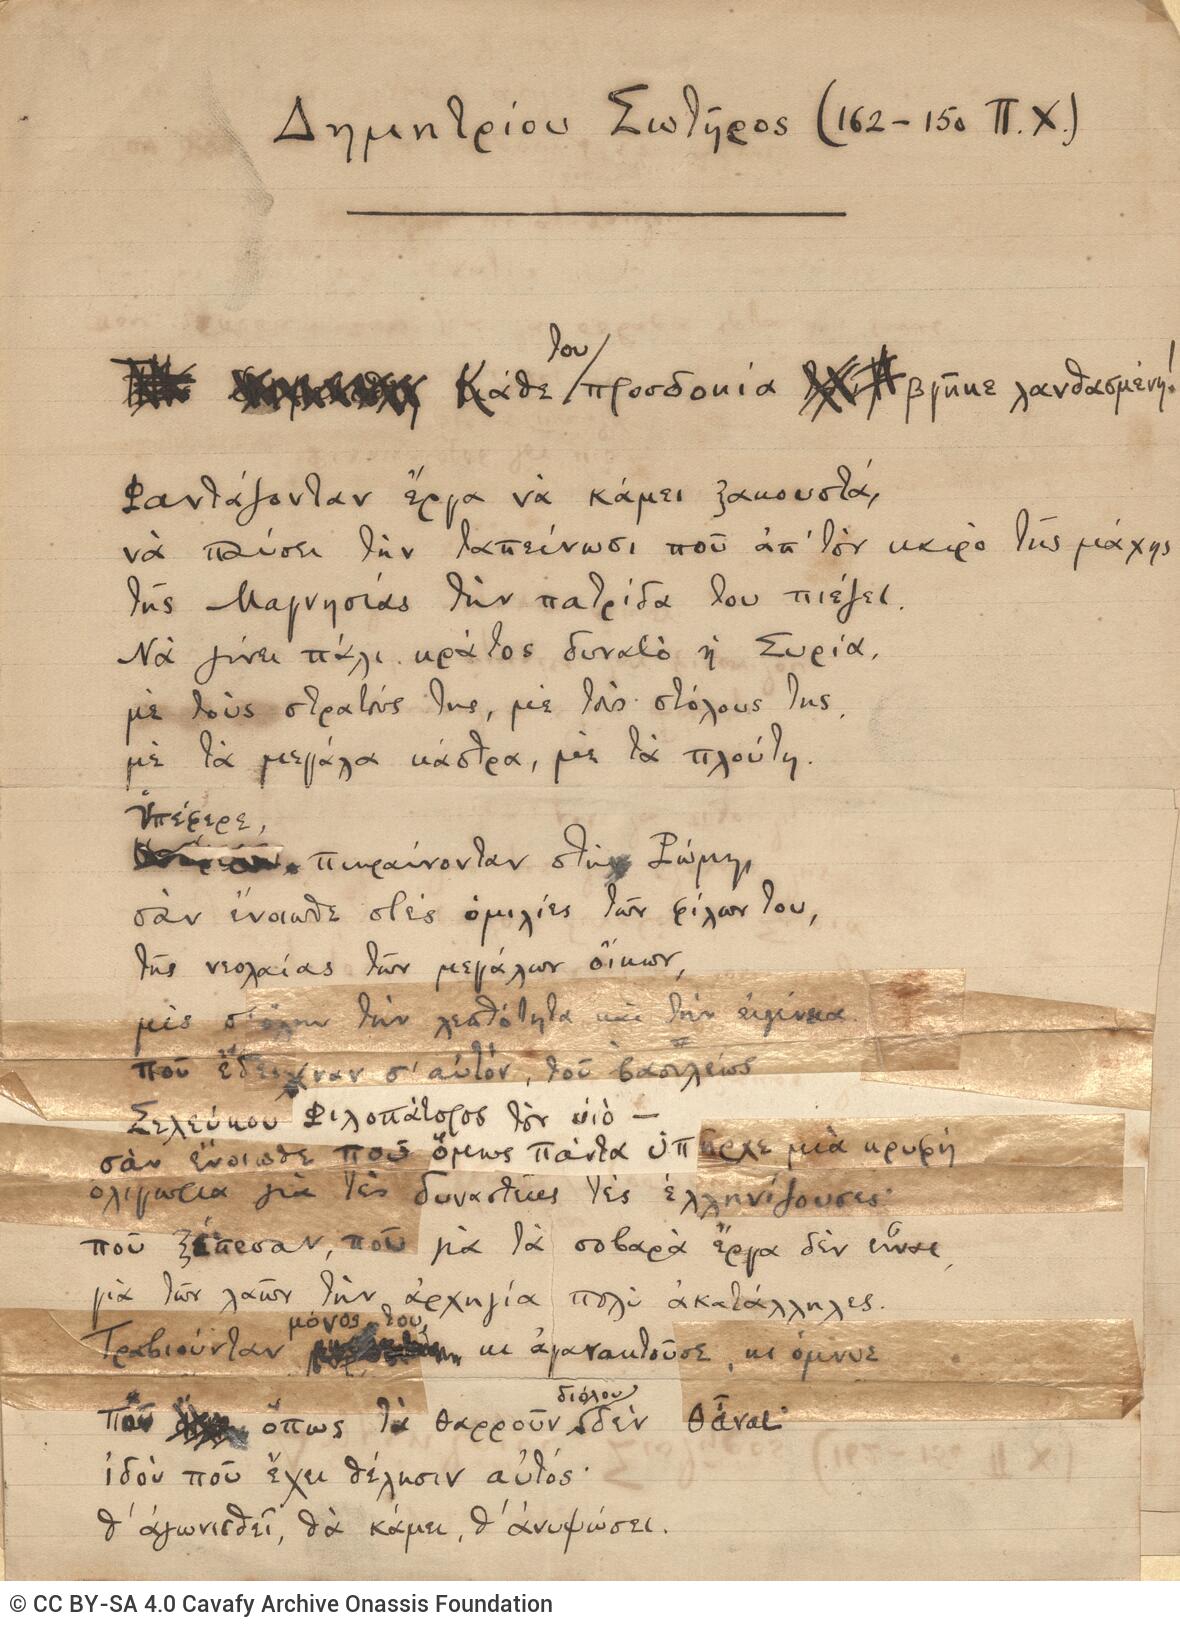 Δημητρίου Σωτῆρος (162–150 Π.Χ.)
του
Κάθε προσδοκία βγῆκε λανθασμένη!
Φαντάζονταν ἔργα νὰ κάμει ξακουστά,
νὰ παύσει τὴν ταπείνωσι ποῦ ἀπ' τὸν καιρὸ τῆς μάχης
τῆς Μαγνησίας τὴν πατρίδα του πιέζει.
Νὰ γίνει πάλι κράτος δυνατὸ ἡ Συρία,
μὲ τοὺς στρατούς της, μὲ τοὺς στόλους της,
μὲ τὰ μεγάλα κάστρα, μὲ τὰ πλούτη.
Ὑπέφερε,
πικραίνονταν στὴν Ρώμη,
σὰν ἔνοιωθε στὲς ὁμιλίες τῶν φίλων του,
τῆς νεολαίας τῶν μεγάλων οἴκων,
μὲς σ' ὅλην τὴν λεπτότητα καὶ τὴν εὐγένεια
ποῦ ἔδειχναν σ' αὐτόν, τοῦ βασιλέως
Σελεύκου Φιλοπάτορος τὸν υἱὸ —
σὰν ἔνοιωθε ποῦ ὅμως πάντα ὑπῆρχε μιὰ κρυφὴ
ὀλιγωρία γιὰ τὲς δυναστεῖες τὲς ἑλληνίζουσες·
ποῦ ξέπεσαν, ποῦ γιὰ τὰ σοβαρὰ ἔργα δὲν εἶναι,
γιὰ τῶν λαῶν τὴν ἀρχηγία πολὺ ἀκατάλληλες.
μόνος του,
Τραβιούνταν κι ἀγανακτοῦσε, κι ὄμνυε
διόλου
ποῦ ὅπως τὰ θαρροῦν δὲν θἆναι·
ἰδοὺ ποῦ ἔχει θέλησιν αὐτός·
θ' ἀγωνισθεῖ, θὰ κάμει, θ' ἀνυψώσει.
© CC BY-SA 4.0 Cavafy Archive Onassis Foundation